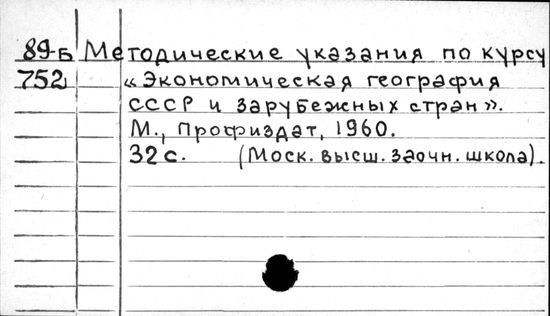 89-Б Методические указания по курсу
752 «Экономическая география
СССР и зарубежных стран».
М., Профиздат, 1960.
32 с. (Моск. высш. заочн. школа).